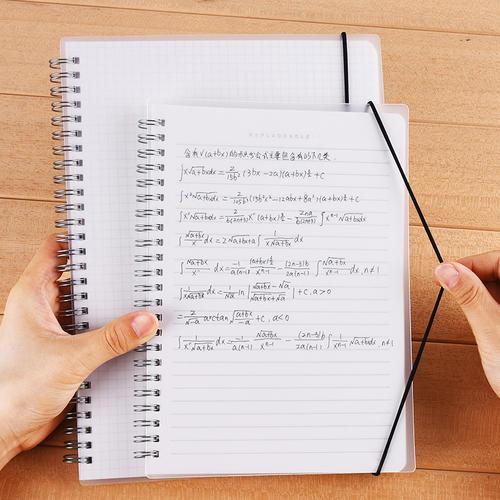 含有√(a+bx)的积分公式主要包含有以下几类
∫x√a+bxdx = 2/15b² (3bx-2a)(a+bx)^3/2 + C
∫x²√a+bxdx = 2/105b³ (15b²x²-12abx+8a²)(a+bx)^3/2 + C
∫xⁿ√a+bxdx = 2/b(2n+3) xⁿ (a+bx)^3/2 - 2na/b(2n+3) ∫xⁿ⁻¹√a+bxdx
∫√a+bx/x dx = 2√a+bx + a∫1/x√a+bx dx
∫√a+bx/xⁿ dx = -1/a(n-1) (a+bx)^3/2/xⁿ⁻¹ - (2n-5)b/2a(n-1) ∫√a+bx/xⁿ⁻¹ dx, n≠1
∫1/x√a+bx dx = 1/√a ln|√a+bx-√a/√a+bx+√a| + C, a>0
= 2/√-a arctan√a+bx/-a + C, a<0
∫1/xⁿ√a+bx dx = -1/a(n-1) √a+bx/xⁿ⁻¹ - (2n-3)b/2a(n-1) ∫1/xⁿ⁻¹ √a+bxdx, n≠1